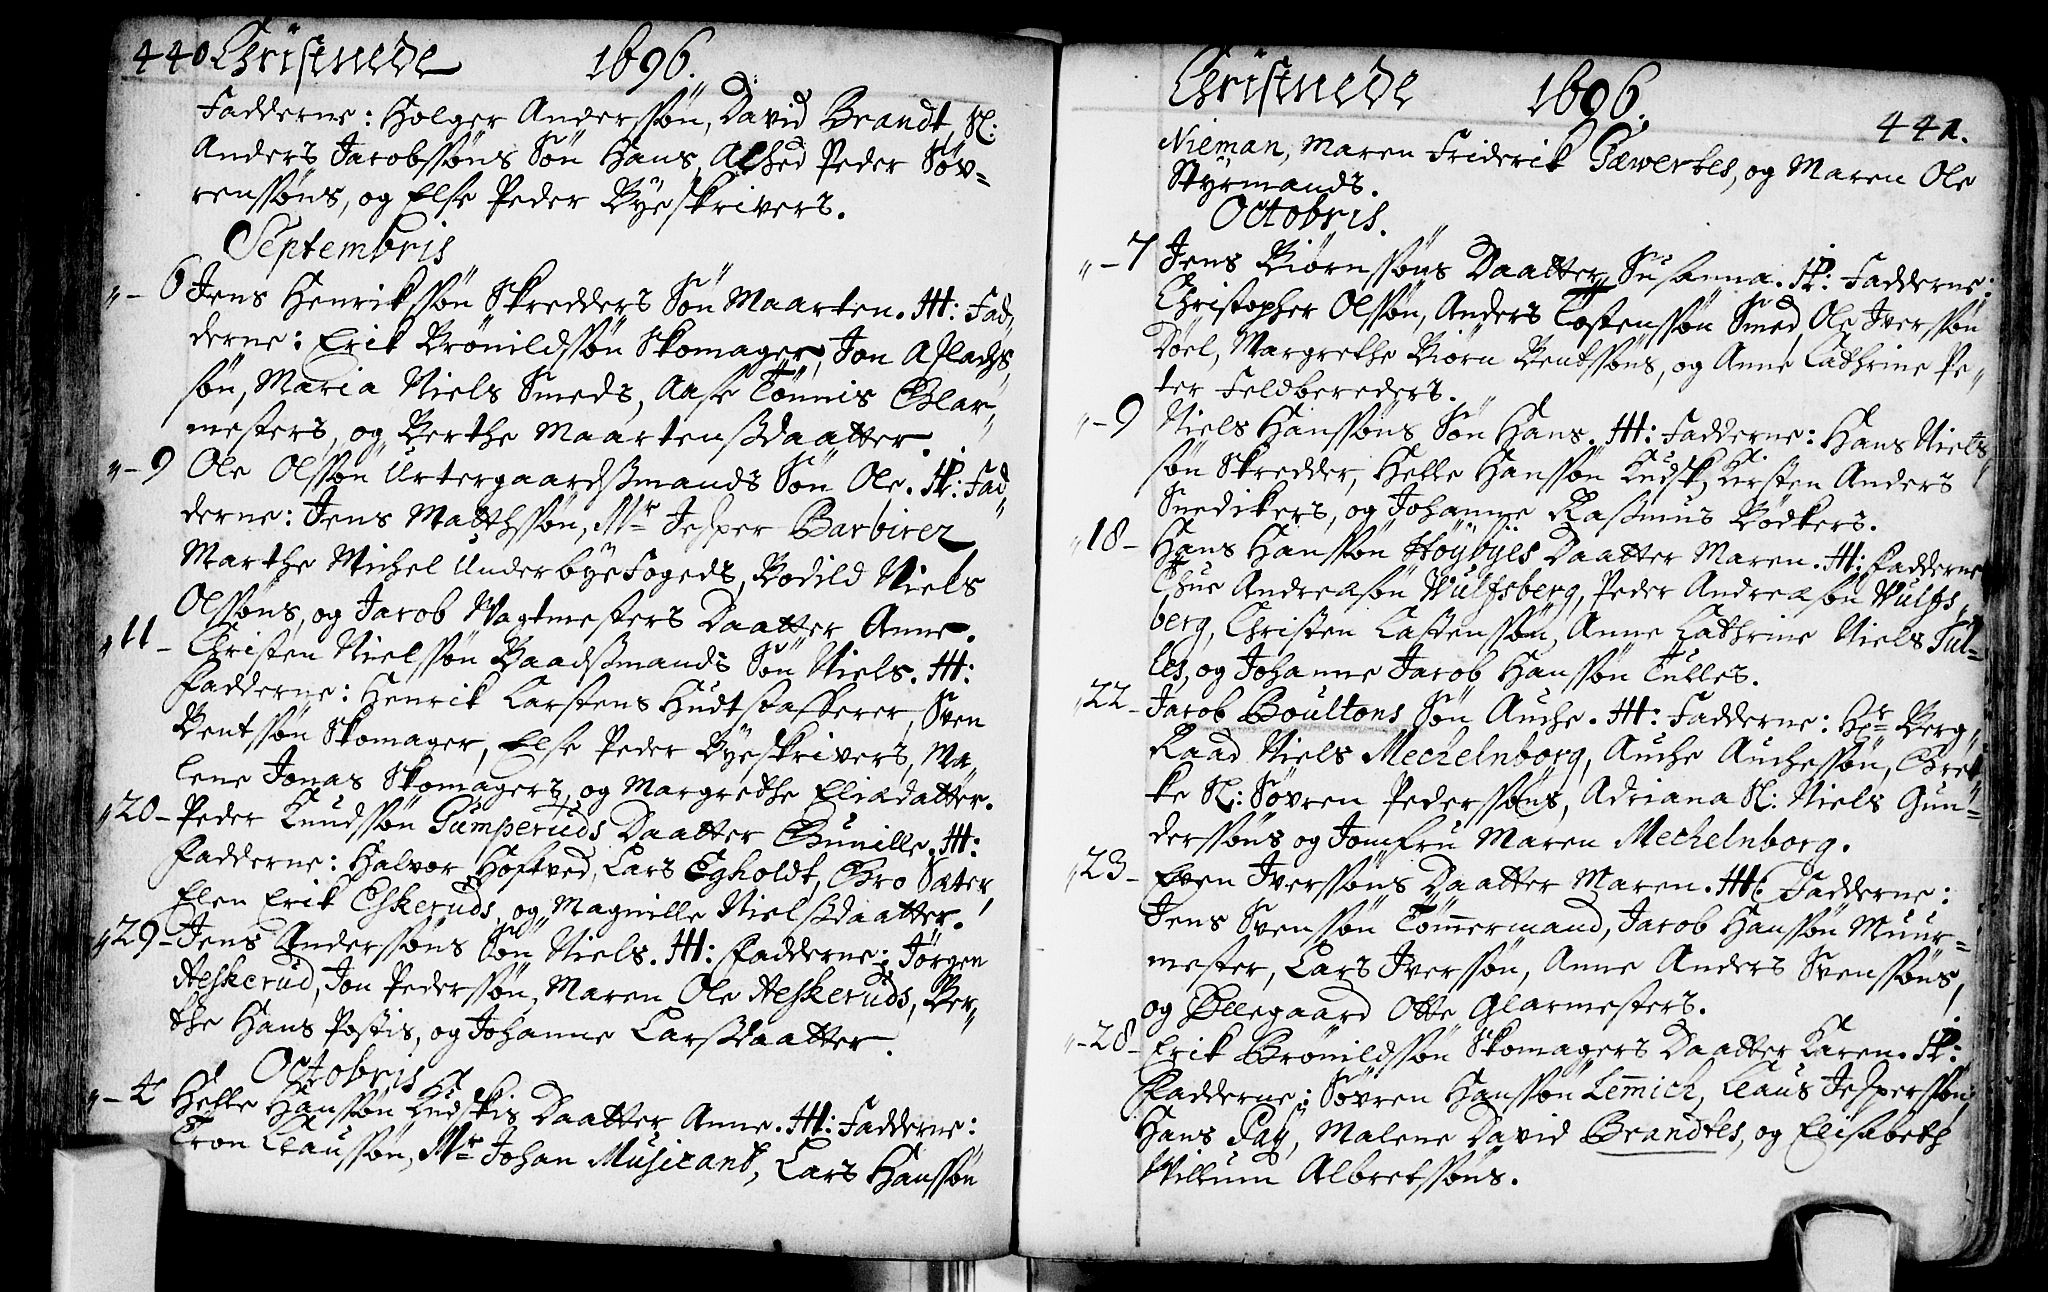 440 Christnede 1696.
Fadderne: Holger Anderssøn, David Brandt, Sl:
Anders Jacobssøns Søn Hans, Alhed Peder Søv=
renssøns, og Else Peder Byeskrivers.
Septembris
"- 6 Jens Henrikssøn Skredders Søn Maarten. H: Fad,
derne: Erik Brönildssøn Skomager, Jon Aslachs,
søn, Maria Niels Smeds, Aase Tönnis Glar,
mesters, og Berthe Maartensdaatter.
"- 9 Ole Olssøn Urtergaardsmands Søn Ole. P: Fad,
derne: Jens Matthssøn, Mr Jesper Barbirer,
Marthe Michel Underbyefogeds, Bodild Niels
Olssøns, og Jacob Vagtmesters Daatter Anne.
"11- Christen Nielssøn Baadsmands Søn Niels. H:
Fadderne: Henrik Carstens Hudtstafferer, Sven
Bentssøn Skomager, Else Peder Byeskrivers, Ma,
lene Jonas Skomagers, og Margrethe Eliædatter.
"20- Peder Knudssøn Gumperuds Daatter Gunille. H:
Fadderne: Halvor Hoftved, Lars Egholdt, Gro Sæter,
Elen Erik Eskeruds, og Magnille Nielsdaatter.
"29- Jens Anderssøns Søn Niels. H: Fadderne: Jörgen
Aeskerud, Jon Pederssøn, Maren Ole Aeskeruds, Ber,
the Hans Postis, og Johanne Larsdaatter.
Octobris
"- 4 Helle Hanssøn Kudskis Daatter Anne. H: Fadderne:
Tron Claussøn, Mr Johan Musicant, Lars Hanssøn
Christnede 1696. 441.
Nieman, Maren Friderik Gæwertes, og Maren Ole
Styrmands.
Octobris.
"- 7 Jens Biørnssøns Daatter Susanna. P: Fadderne:
Christopher Olssøn, Anders Tostenssøn Smed, Ole Iverssøn
Döel, Margrethe Biørn Bentssøns, og Anne Cathrine Pe,
ter Feldbereders.
"- 9 Niels Hanssøns Søn Hans. H: Fadderne: Hans Niels,
søn Skredder, Helle Hanssøn Kudsk, Kirsten Anders
Snedikers, og Johanne Rasmus Bödkers.
"18- Hans Hanssøn Höybyes Daatter Maren. H: Fadderne
Thue Andreæsøn Wulfsberg, Peder Andreæsøn Wulfs,
berg, Christen Carstenssøn, Anne Cathrine Niels Tul=
les, og Johanne Jacob Hanssøn Tulles.
"22- Jacob Boultons Søn Auche. H: Fadderne: Hr Berg,
Raad Niels Mechelnborg, Auche Auchessøn, Bret,
ke Sl: Søvren Pederssøns, Adriana Sl: Niels Gun=
derssøns og Jomfru Maren Mechelnborg.
"23- Even Iverssøns Daatter Maren. H: Fadderne:
Jens Svenssøn Tömermand, Jacob Hanssøn Muur=
mester, Lars Iverssøn, Anne Anders Svenssøns,
og Ellegaard Otte Glarmesters.
"-28- Erik Brönildssøn Skomagers Daatter Karen. P:
Fadderne: Søvren Hanssøn Lemich, Claus Jesperssøn,
Hans Pay, Malene David Brandtes, og Elisabeth
Willum Albretssøns.